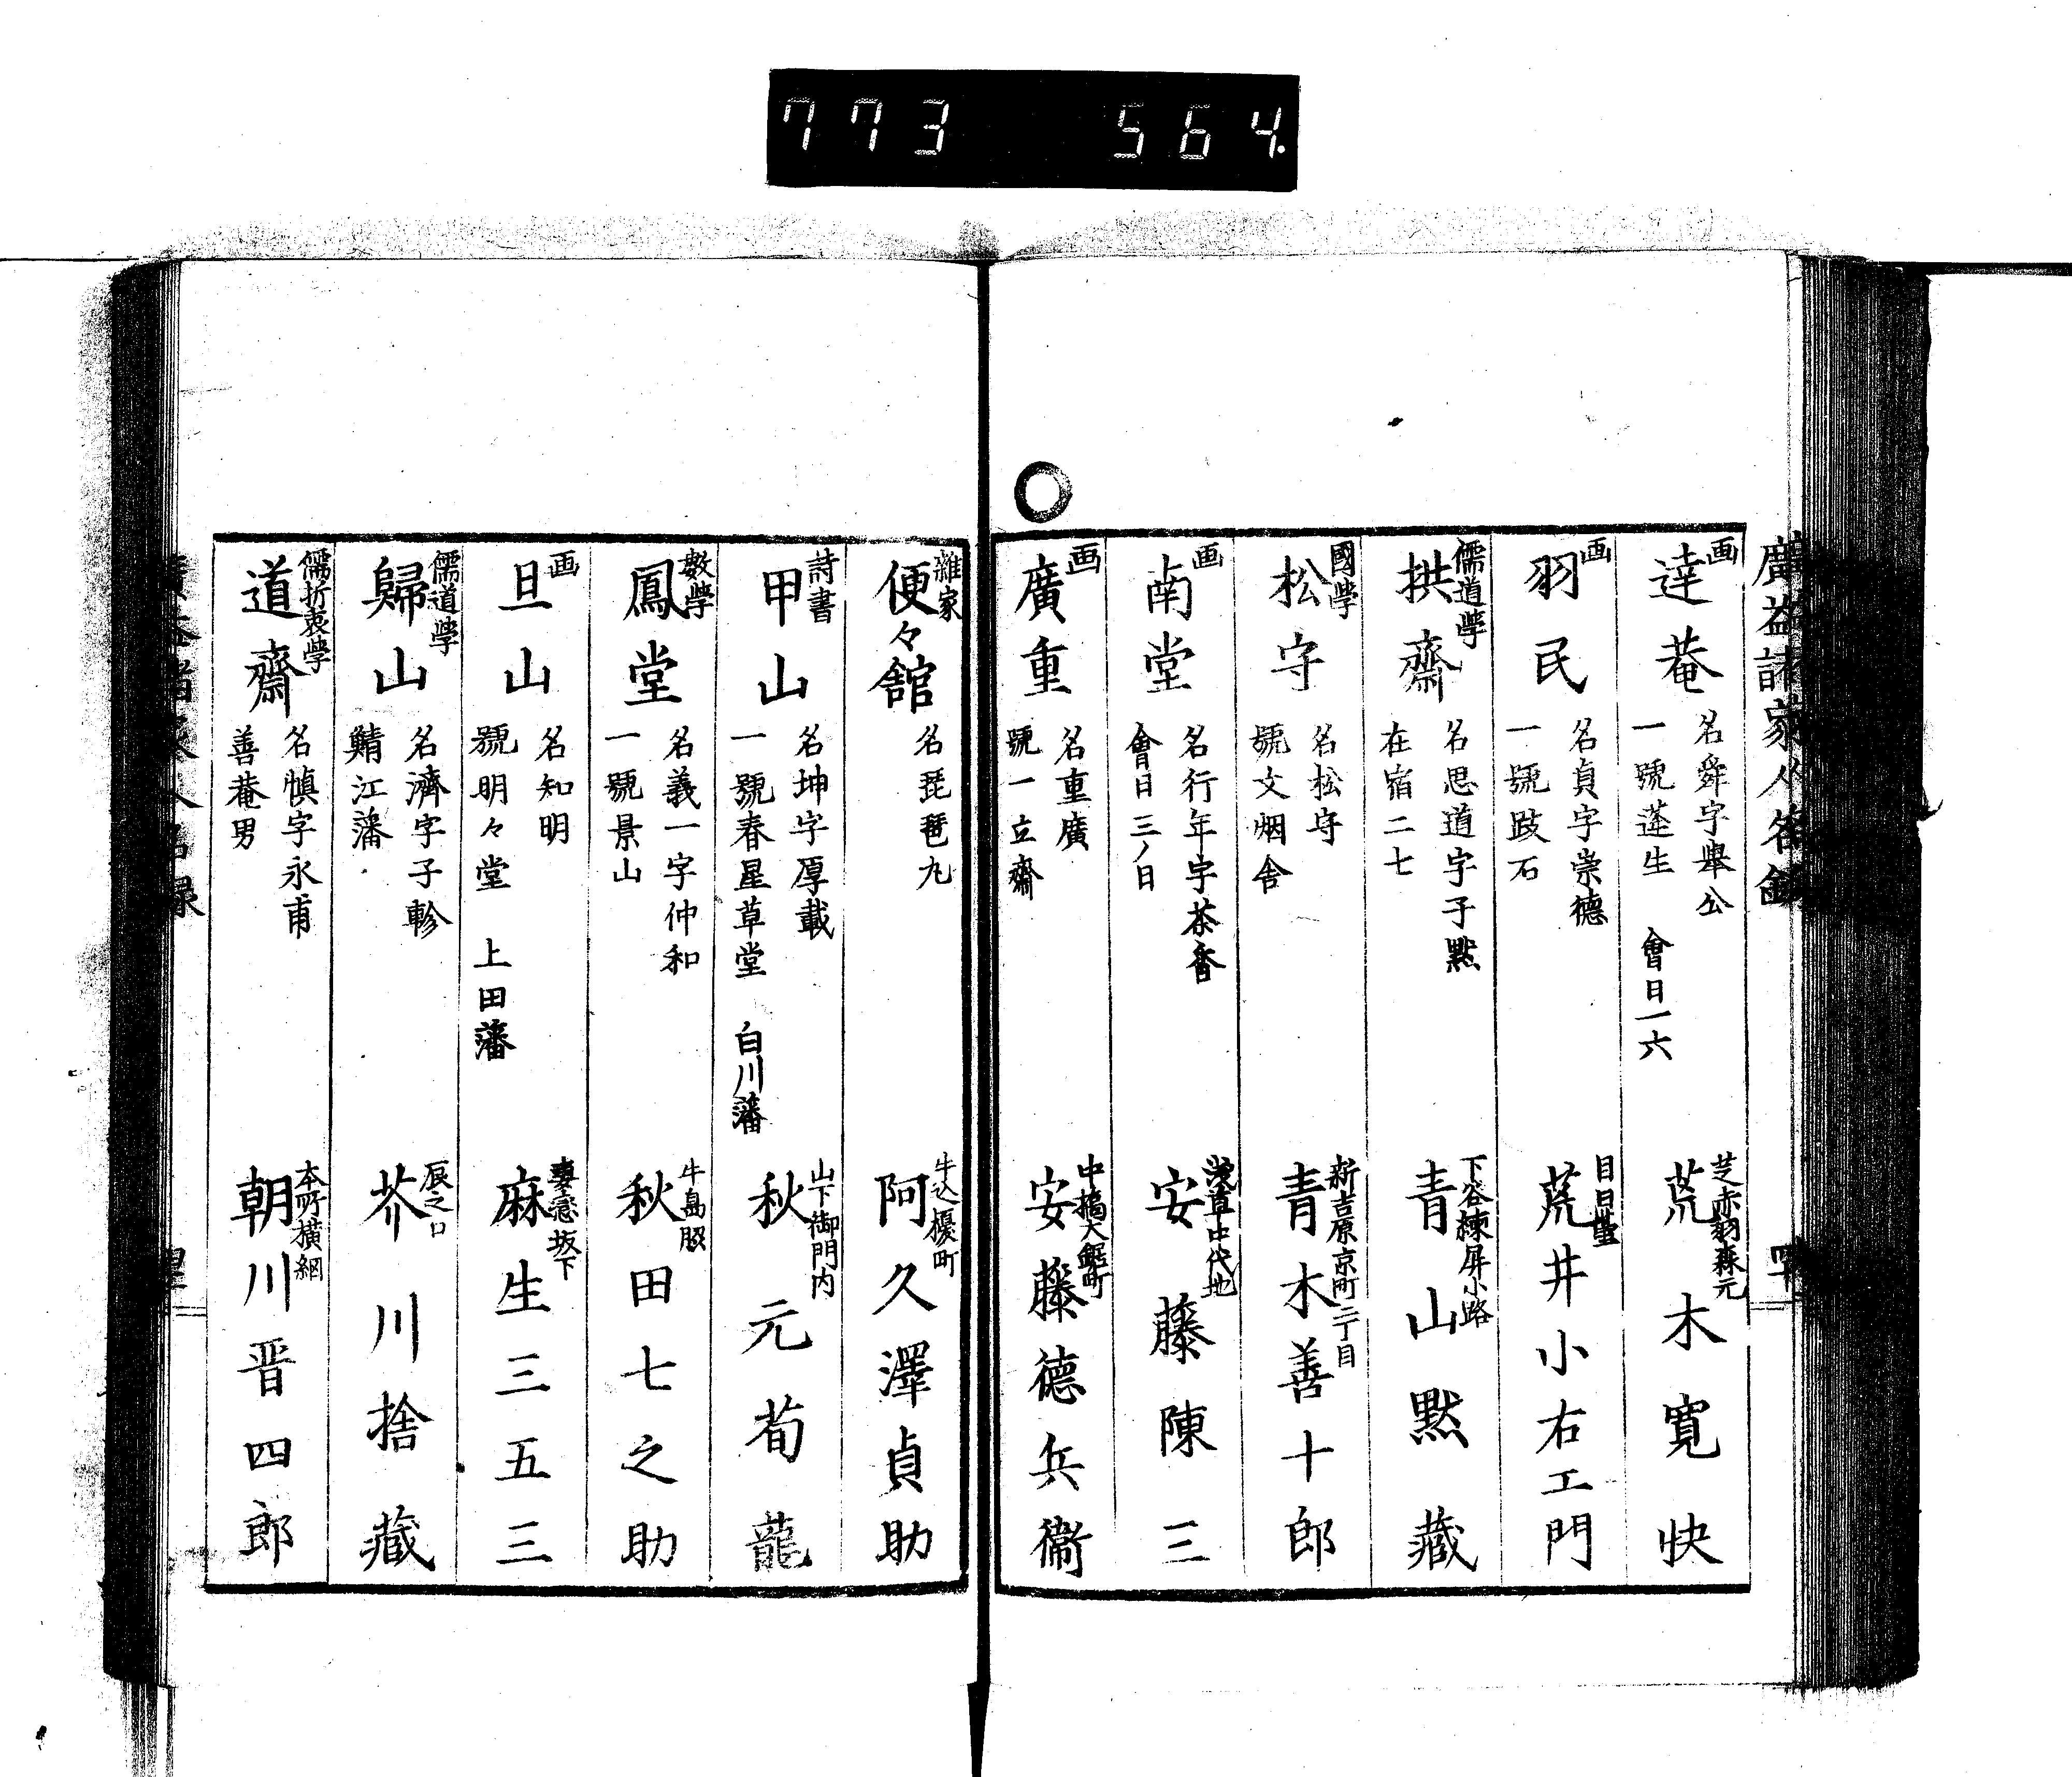 773 564.
廣益諸家人名録
画
達菴
名舜字舉公
一號蓬生 會日一六
芝赤羽森元
荒木寛快
画
羽民
名貞字崇德
一號跂石
荒井小右工門
儒道學
拱齋
名思道字子默
在宿二七
下谷練屏小路
青山默藏
國學
松守
名松守
號文烟舎
新吉原京町二丁目
青木善十郎
画
南堂
名行年字茶香
會日三ノ日
淺草中代地
安藤陳三
画
廣重
名重廣
號一立齋
中橋大鋸町
安藤德兵衞
雜家
便々舘
名琵琶九
牛込榎町
阿久澤貞助
詩書
甲山
名坤字厚載
一號春星草堂 白川藩
山下御門内
秋元荀龍
數學
鳳堂
名義一字仲和
一號景山
牛島
秋田七之助
画
旦山
名知明
號明々堂 上田藩
妻恋坂下
麻生三五三
儒道學
歸山
名濟字子軫
鯖江藩
辰之口
芥川捨藏
儒折衷學
道齋
名愼字永甫
善菴男
本所横網
朝川晋四郎